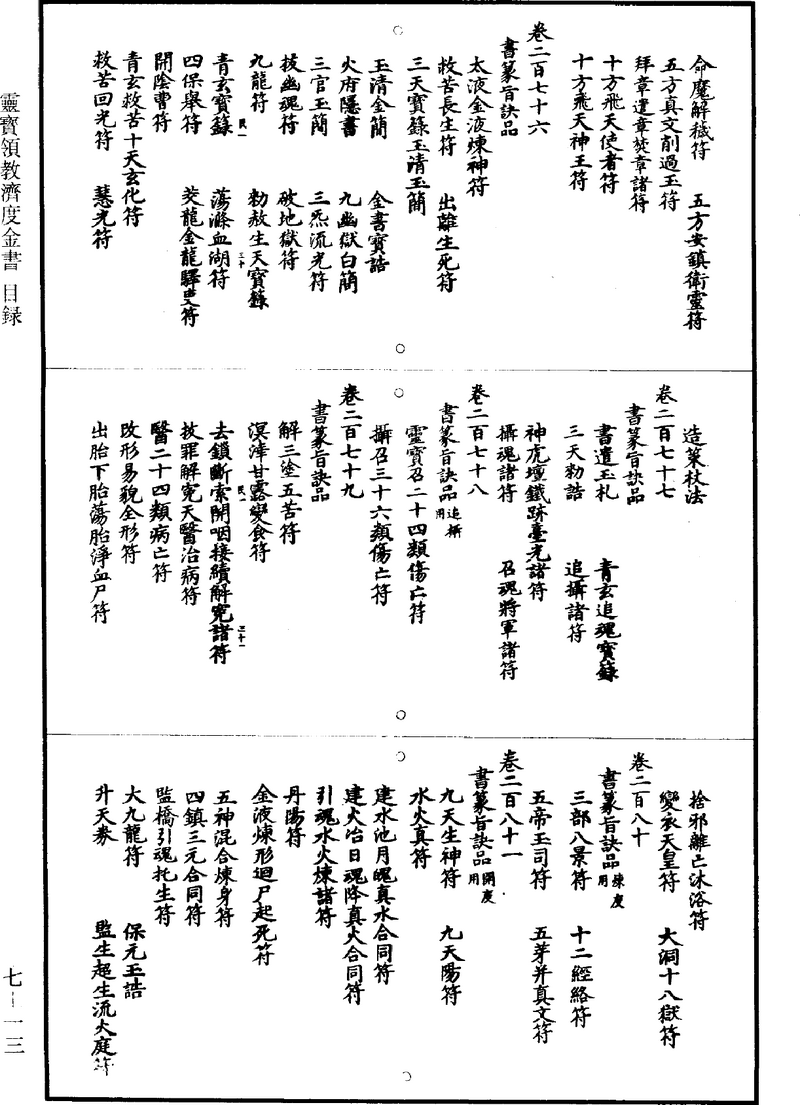 命魔解穢符　五方安鎮衛靈符
五方真文削過玉符
拜章遣章焚章諸符
十方飛天使者符
十方飛天神王符
卷二百七十六
書篆旨訣品
太液金液煉神符
救苦長生符　出離生死符
三天寶籙玉清玉簡
玉清金簡　金書寶誥
火府隱書　九幽獄白簡
三官玉簡　三炁流光符
拔幽魂符　破地獄符
九龍符　勑赦生天寶籙
民一　三十
青玄寶籙　蕩滌血湖符
四保舉符　茭龍金龍驛吏符
開陰曹符
青玄救苦十天玄化符
救苦回光符　慧光符
造策杖法
卷二百七十七
書篆旨訣品
書遣玉札　青玄追魂寶籙
三天勑誥　追攝諸符
神虎壇鐵跡臺光諸符
攝魂諸符　召魂將軍諸符
卷二百七十八
書篆旨訣品追攝用
靈寶召二十四類傷亡符
攝召三十六類傷亡符
卷二百七十九
書篆旨訣品
解三塗五苦符
溟涬甘露變食符
民一　三十一
去鎖斷索開咽接續解冤諸符
拔罪解冤天醫治病符
醫二十四類病亡符
改形易貌全形符
出胎下胎蕩胎淨血尸符
捨邪離亡沐浴符
變衣天皇符　大洞十八獄符
卷二百八十
書篆旨訣品煉度用
三部八景符　十二經絡符
五帝玉司符　五芽并真文符
卷二百八十一
書篆旨訣品開度用
九天生神符　九天陽符
水火真符
建水池月魄真水合同符
建火冶日魂降真火合同符
引魂水火煉諸符
丹陽符
金液煉形迴尸起死符
五神混合煉身符
四鎮三元合同符
監橋引魂托生符
大九龍符　保元玉誥
升天券　監生超生流火庭符
靈寶領教濟度金書　目録
七—一三